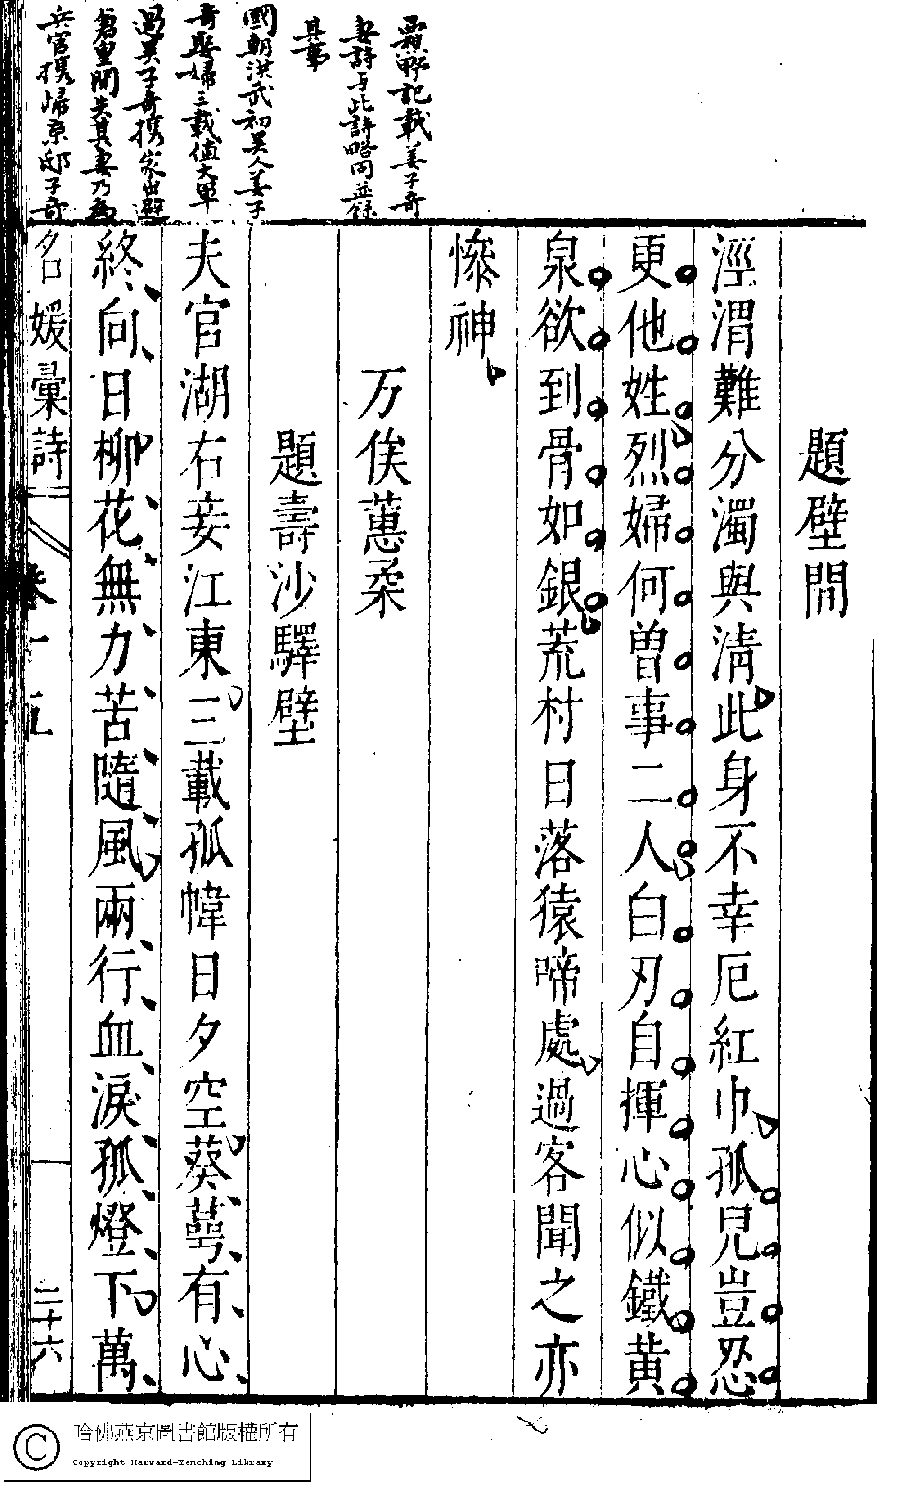 題壁間
涇渭難分濁與淸此身不幸厄紅巾孤兒豈忍
更他姓烈婦何曾事二人白刃自揮心似鐵黄
泉欲到骨如銀荒村日落猿啼處過客聞之亦
慘神
万俟蕙柔
題壽沙驛壁
夫官湖右妾江東三載孤幃日夕空葵萼有心
終向日柳花無力苦隨風兩行血淚孤燈下萬
名媛彙詩
卷十五
二十六
記載姜子奇
妻詩与此詩略同並錄
其事
國朝洪武初吳人姜子
奇娶婦三載值大軍
過吳子奇携家出避
倉皇間失其妻乃為
兵官携歸京邸子奇
哈佛燕京圖書館版權所有
Copyright Harvard-Yenching Library